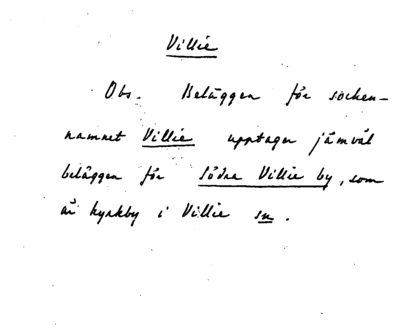 Villie
Obs. Beläggen för socken-
namnet Villie upptager jämväl
beläggen för Södra Villie by, som
är kyrkby i Villie sn.